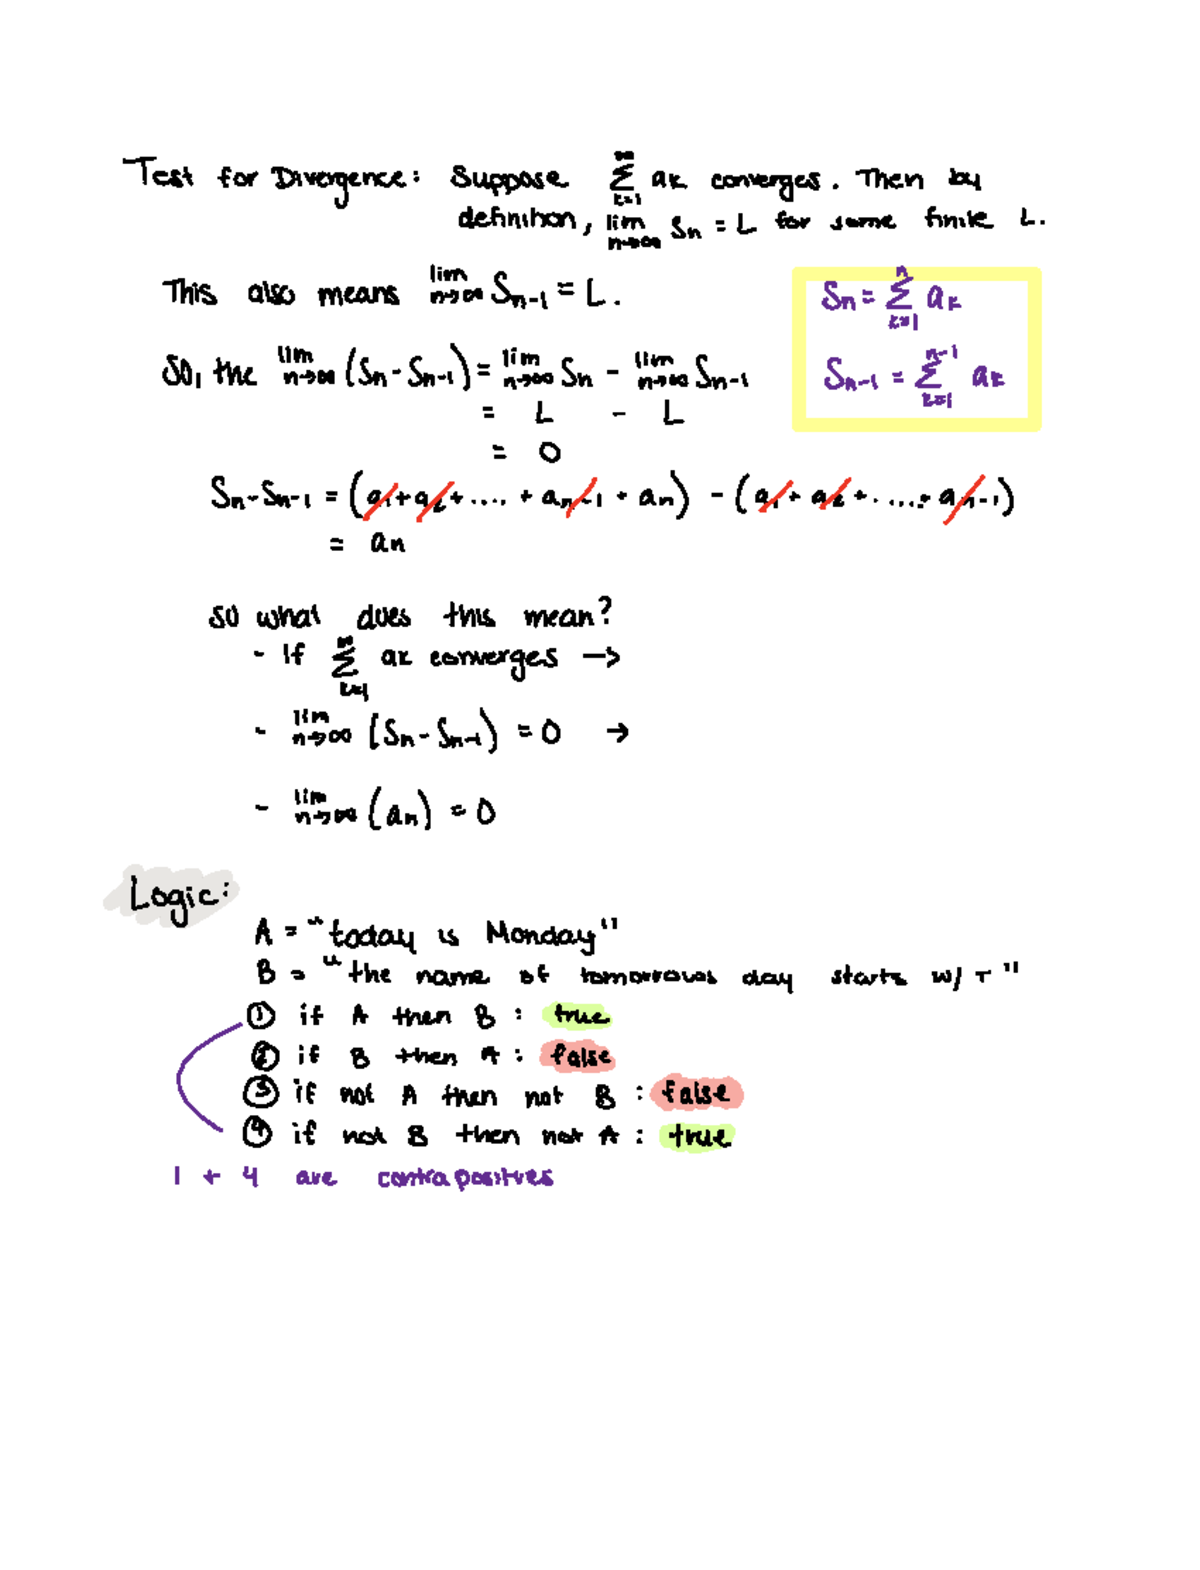 Test for Divergence: Suppose ∞Σk=1 ak converges. Then by
definition, lim n→∞ Sn = L for some finite L.
This also means lim n→∞ Sn-1 = L.
Sn = nΣk=1 ak
So, the lim n→∞ (Sn - Sn-1) = lim n→∞ Sn - lim n→∞ Sn-1
Sn-1 = n-1Σk=1 ak
= L - L
= 0
Sn - Sn-1 = (a1 + a2 + .... + an-1 + an) - (a1 + a2 + ..... + an-1)
= an
So what does this mean?
- If ∞Σk=1 ak converges →
- lim n→∞ (Sn - Sn-1) = 0 →
- lim n→∞ (an) = 0
Logic:
A = "today is Monday"
B = "the name of tomorrows day starts w/ T"
① if A then B : true
② if B then A : false
③ if not A then not B : false
④ if not B then not A : true
1 + 4 are contrapositives